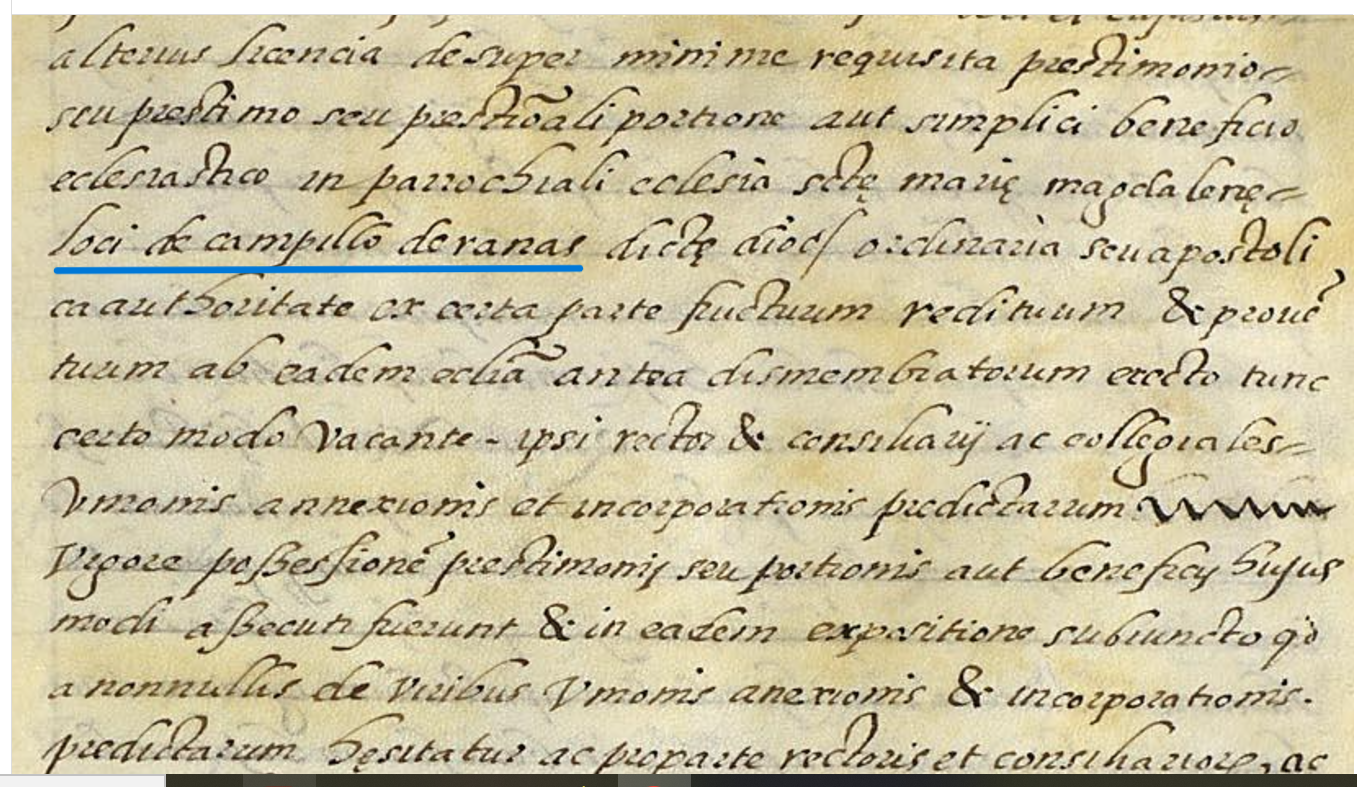 alterius licencia desuper minime requisita prestimonio
seu prestimo seu prestiõali portione aut simplici beneficio
eclesiastico in parrochiali eclesia sctę marię magdalenę
loci de campillo de ranas dictę dioc ordinaria seu apostoli
ca authoritate ex certa parte fructuum redituum & prouē
tuum ab eadem eclīa antea dismembratorum erecto tunc
certo modo vacante - ipsi rector & consiliarij ac collegiales
Vnionis annexionis et incorporationis predictarum
Vigore possessionē prestimonij seu portionis aut beneficij hujus
modi assecuti fuerunt & in eadem expositione subiuncto qd
a nonnullis de viribus Vnionis anexionis & incorporationis.
predictarum hęsitatur ac pro parte rectoris et consiliarior, ac